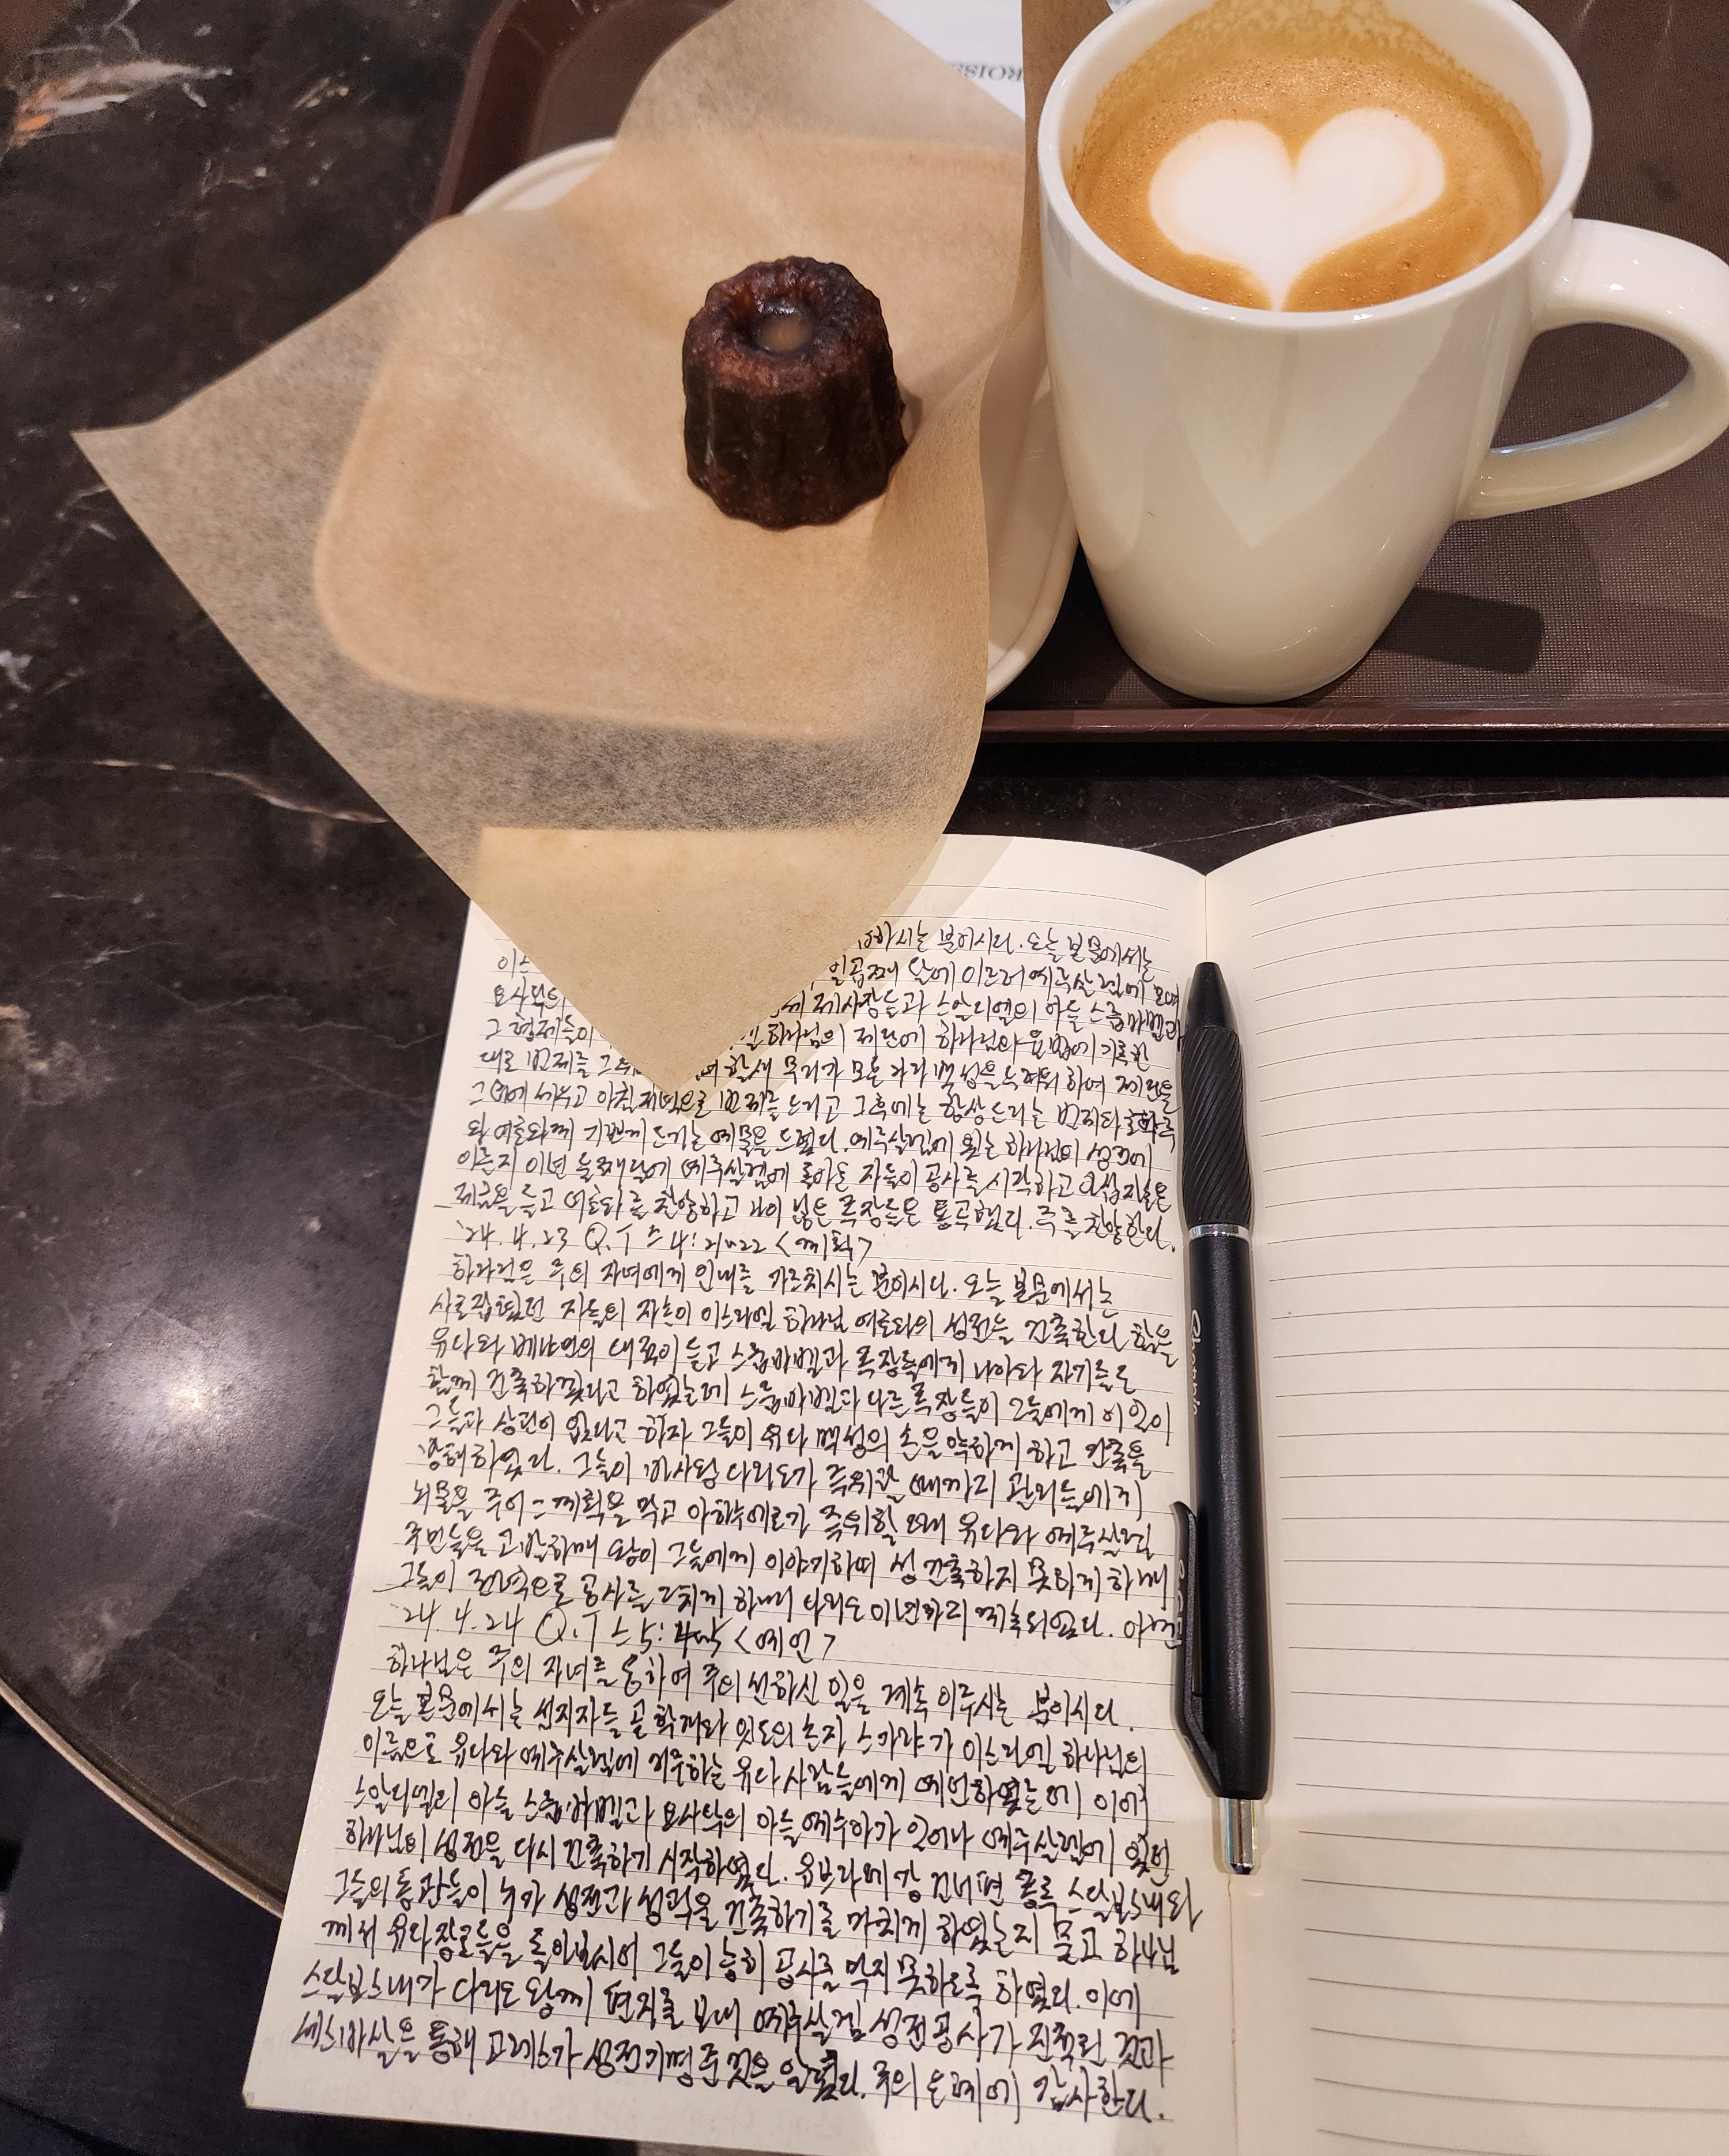 ROISS
하시는 분이시다. 오늘 본문에서는
이스 일곱째 달에 이르러 예루살렘에 모여
요사닥의 제사장들과 스알디엘의 아들 스룹바벨과
그 형제들이 하나님의 제단에 하나님의 율법에 기록한
대로 번제를 그 할새 무리가 모든 나라 백성을 두려워 하여 제단을
그 터에 세우고 아침 저녁으로 번제를 드리고 그후에는 항상 드리는 번제와 초하루
와 여호와께 기쁘게 드리는 예물을 드렸다. 예루살렘에 있는 하나님의 성전에
이른지 이년 둘째달에 예루살렘에 돌아온 자들이 공사를 시작하고 제사장들은
제금을 들고 여호와를 찬양하고 나이 많은 족장들은 통곡했다. 주를 찬양한다.
'24. 4. 23 Q.T 스 4:21~22 <계획>
하나님은 주의 자녀에게 인내를 가르치시는 분이시다. 오늘 본문에서는
사로잡혔던 자들의 자손이 이스라엘 하나님 여호와의 성전을 건축한다 함을
유다와 베냐민의 대적이 듣고 스룹바벨과 족장들에게 나아와 자기들도
함께 건축하겠다고 하였는데 스룹바벨과 다른 족장들이 그들에게 이 일이
그들과 상관이 없다고 하자 그들이 유다 백성의 손을 약하게 하고 건축을
방해하였다. 그들이 바사왕 다리오가 즉위할 때까지 관리들에게
뇌물을 주어 그 계획을 막고 아하수에로가 즉위할 때 유다와 예루살렘
주민들을 고발하매 왕이 그들에게 이야기하며 성 건축하지 못하게 하매
그들이 권력으로 공사를 그치게 하매 다리오 이년까지 계속되었다.
'24. 4. 24 Q.T 스 5: <예언>
하나님은 주의 자녀를 통하여 주의 선하신 일을 계속 이루시는 분이시다.
오늘 본문에서는 선지자들 곧 학개와 잇도의 손자 스가랴가 이스라엘 하나님의
이름으로 유다와 예루살렘에 거주하는 유다 사람들에게 예언하였는데 이에
스알디엘의 아들 스룹바벨과 요사닥의 아들 예수아가 일어나 예루살렘에 있던
하나님의 성전을 다시 건축하기 시작하였다. 유브라데 강 건너편 총독 스달보스내와
그들의 동관들이 누가 성전과 성곽을 건축하기를 마치게 하였는지 묻고 하나님
께서 유다 장로들을 돌아보시어 그들이 능히 공사를 막지 못하도록 하였다. 이에
스달보스내가 다리오 왕께 편지를 보내 예루살렘 성전 공사가 진척된 것과
세스바살을 통해 고레스가 성전기명 준것을 알렸다. 주의 은혜에 감사한다.